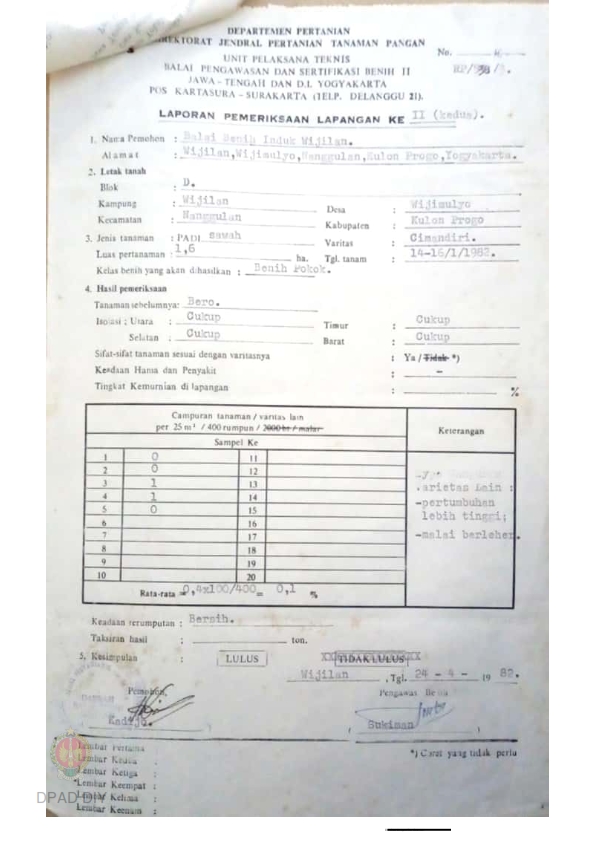 DEPARTEMEN PERTANIAN
DIREKTORAT JENDRAL PERTANIAN TANAMAN PANGAN
UNIT PELAKSANA TEKNIS
BALAI PENGAWASAN DAN SERTIFIKASI BENIH II
JAWA - TENGAH DAN D.I. YOGYAKARTA
POS KARTASURA - SURAKARTA (TELP. DELANGGU 21).
No.
LAPORAN PEMERIKSAAN LAPANGAN KE II (kedua).
1. Nama Pemohon : Balai Benih Induk Wijilan.
Alamat : Wijilan,Wijimulyo,Nanggulan,Kulon Progo,Yogyakarta.
2. Letak tanah
Blok : D.
Kampung : Wijilan Desa : Wijimulyo
Kecamatan : Nanggulan Kabupaten : Kulon Progo
3. Jenis tanaman : PADI sawah Varitas : Cimandiri.
Luas pertanaman : 1,6 ha. Tgl. tanam : 14-16/1/1982.
Kelas benih yang akan dihasilkan : Benih Pokok.
4. Hasil pemeriksaan
Tanaman sebelumnya: Bero.
Isolasi : Utara : Cukup Timur : Cukup
Selatan : Cukup Barat : Cukup
Sifat-sifat tanaman sesuai dengan varitasnya : Ya / Tidak *)
Keadaan Hama dan Penyakit : -
Tingkat Kemurnian di lapangan : %
Campuran tanaman / varitas lain
per 25 m² / 400 rumpun / 2000 ht / malai
Keterangan
Sampel Ke
1 0 11
2 0 12
3 1 13
4 1 14
5 0 15
6 16
7 17
8 18
9 19
10 20
.arietas Lain :
-pertumbuhan
lebih tinggi;
-malai berleher.
Rata-rata = 0,4x100/400= 0,1 %
Keadaan rerumputan : Bersih.
Taksiran hasil : ton.
5. Kesimpulan : LULUS TIDAK LULUS
Wijilan , Tgl. 24 - 4 - 1982.
Pemohon, Pengawas Benih
( Kadijo. ) ( Sukiman )
*) Coret yang tidak perlu
Lembar Pertama :
Lembar Kedua :
Lembar Ketiga :
Lembar Keempat :
Lembar Kelima :
Lembar Keenam :
DPAD DIY